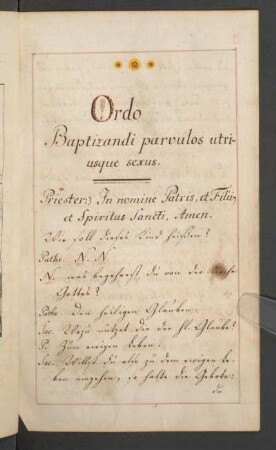 Ordo
Baptizandi parvulos utri-
usque sexus.
Priester:) In nomine Patris, et Filii,
et Spiritus Sancti, Amen.
Wie soll dieses Kind heißen?
Pathe. N. N.
N. was begehrest du von der Kirche
Gottes?
Pathe. Den heiligen Glauben.
Sac. Wozu nützet dir der hl. Glaube?
P. Zum ewigen Leben.
Sac. Willst du also zu dem ewigen Le-
ben eingehen, so halte die Gebote:
du